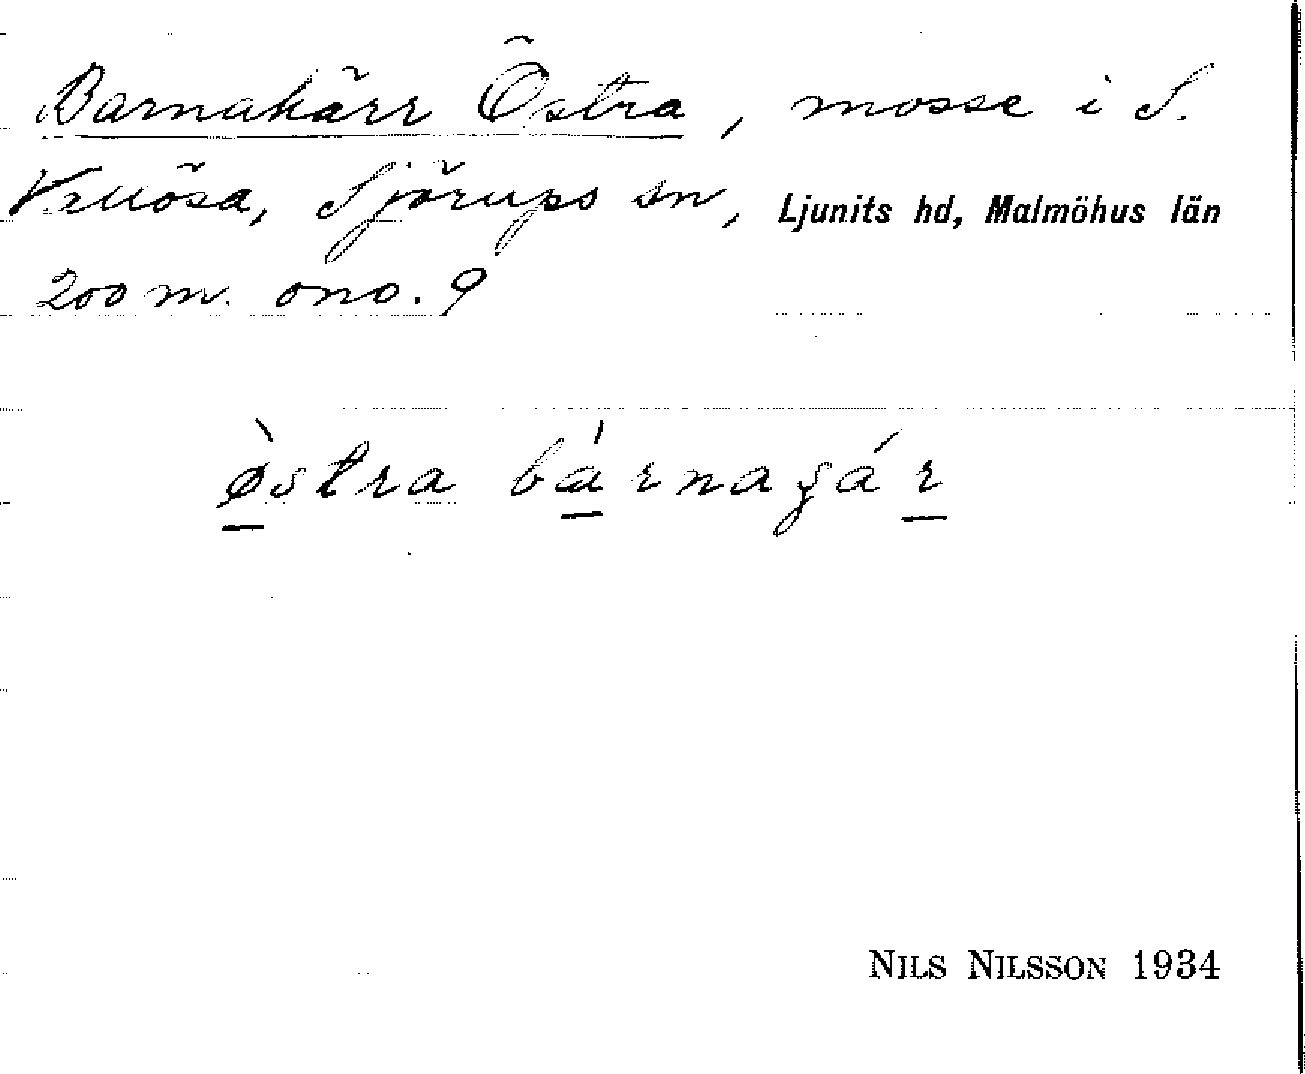 Barnakärr Östra, mosse i S.
Vallösa, Sjörups sn, Ljunits hd, Malmöhus län
200 m. ono. 9
östra bárnagár
NILS NILSSON 1934